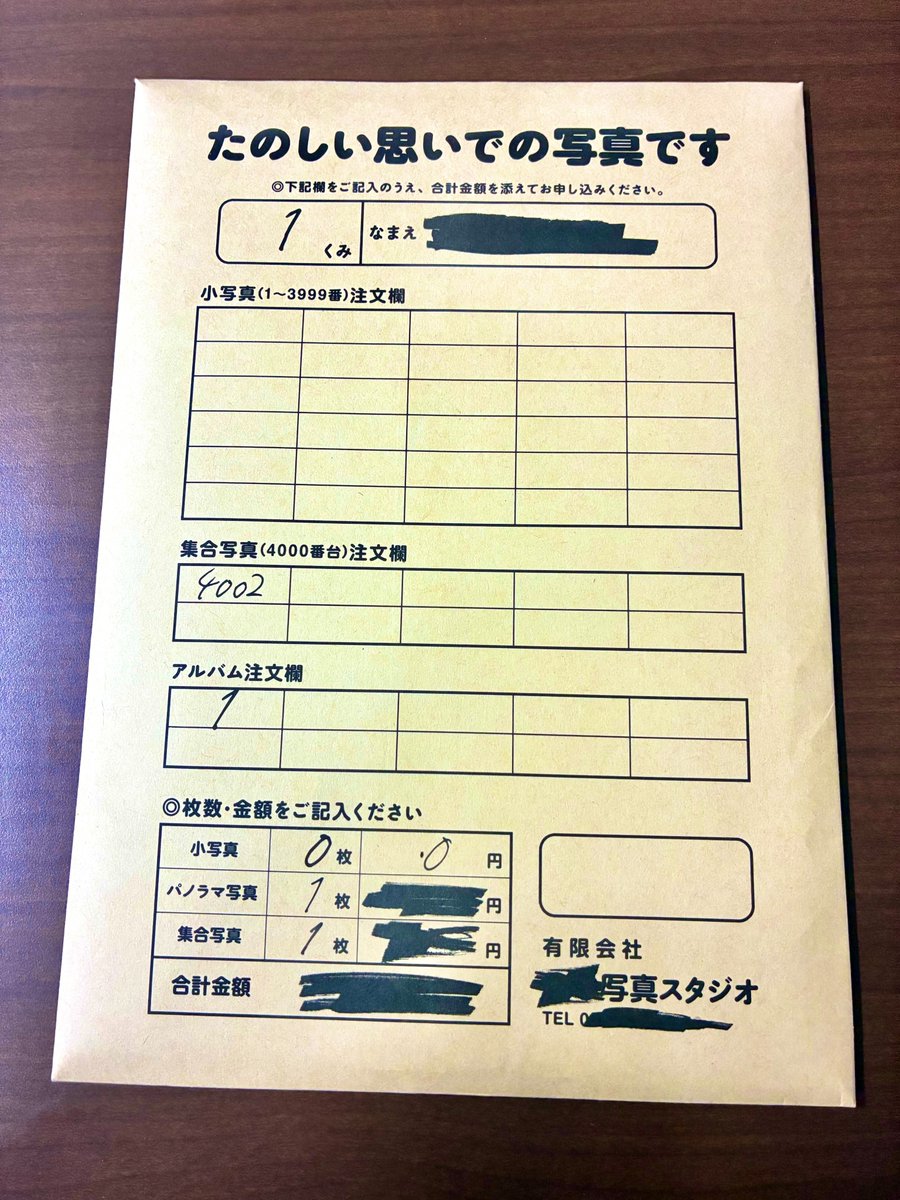 たのしい思いでの写真です
◎下記欄をご記入のうえ、合計金額を添えてお申し込みください。
1 くみ なまえ
小写真(1～3999番)注文欄
集合写真(4000番台)注文欄
4002
アルバム注文欄
1
◎枚数・金額をご記入ください
小写真 0枚 0円
パノラマ写真 1枚 円
集合写真 1枚 円
合計金額
有限会社
写真スタジオ
TEL 0